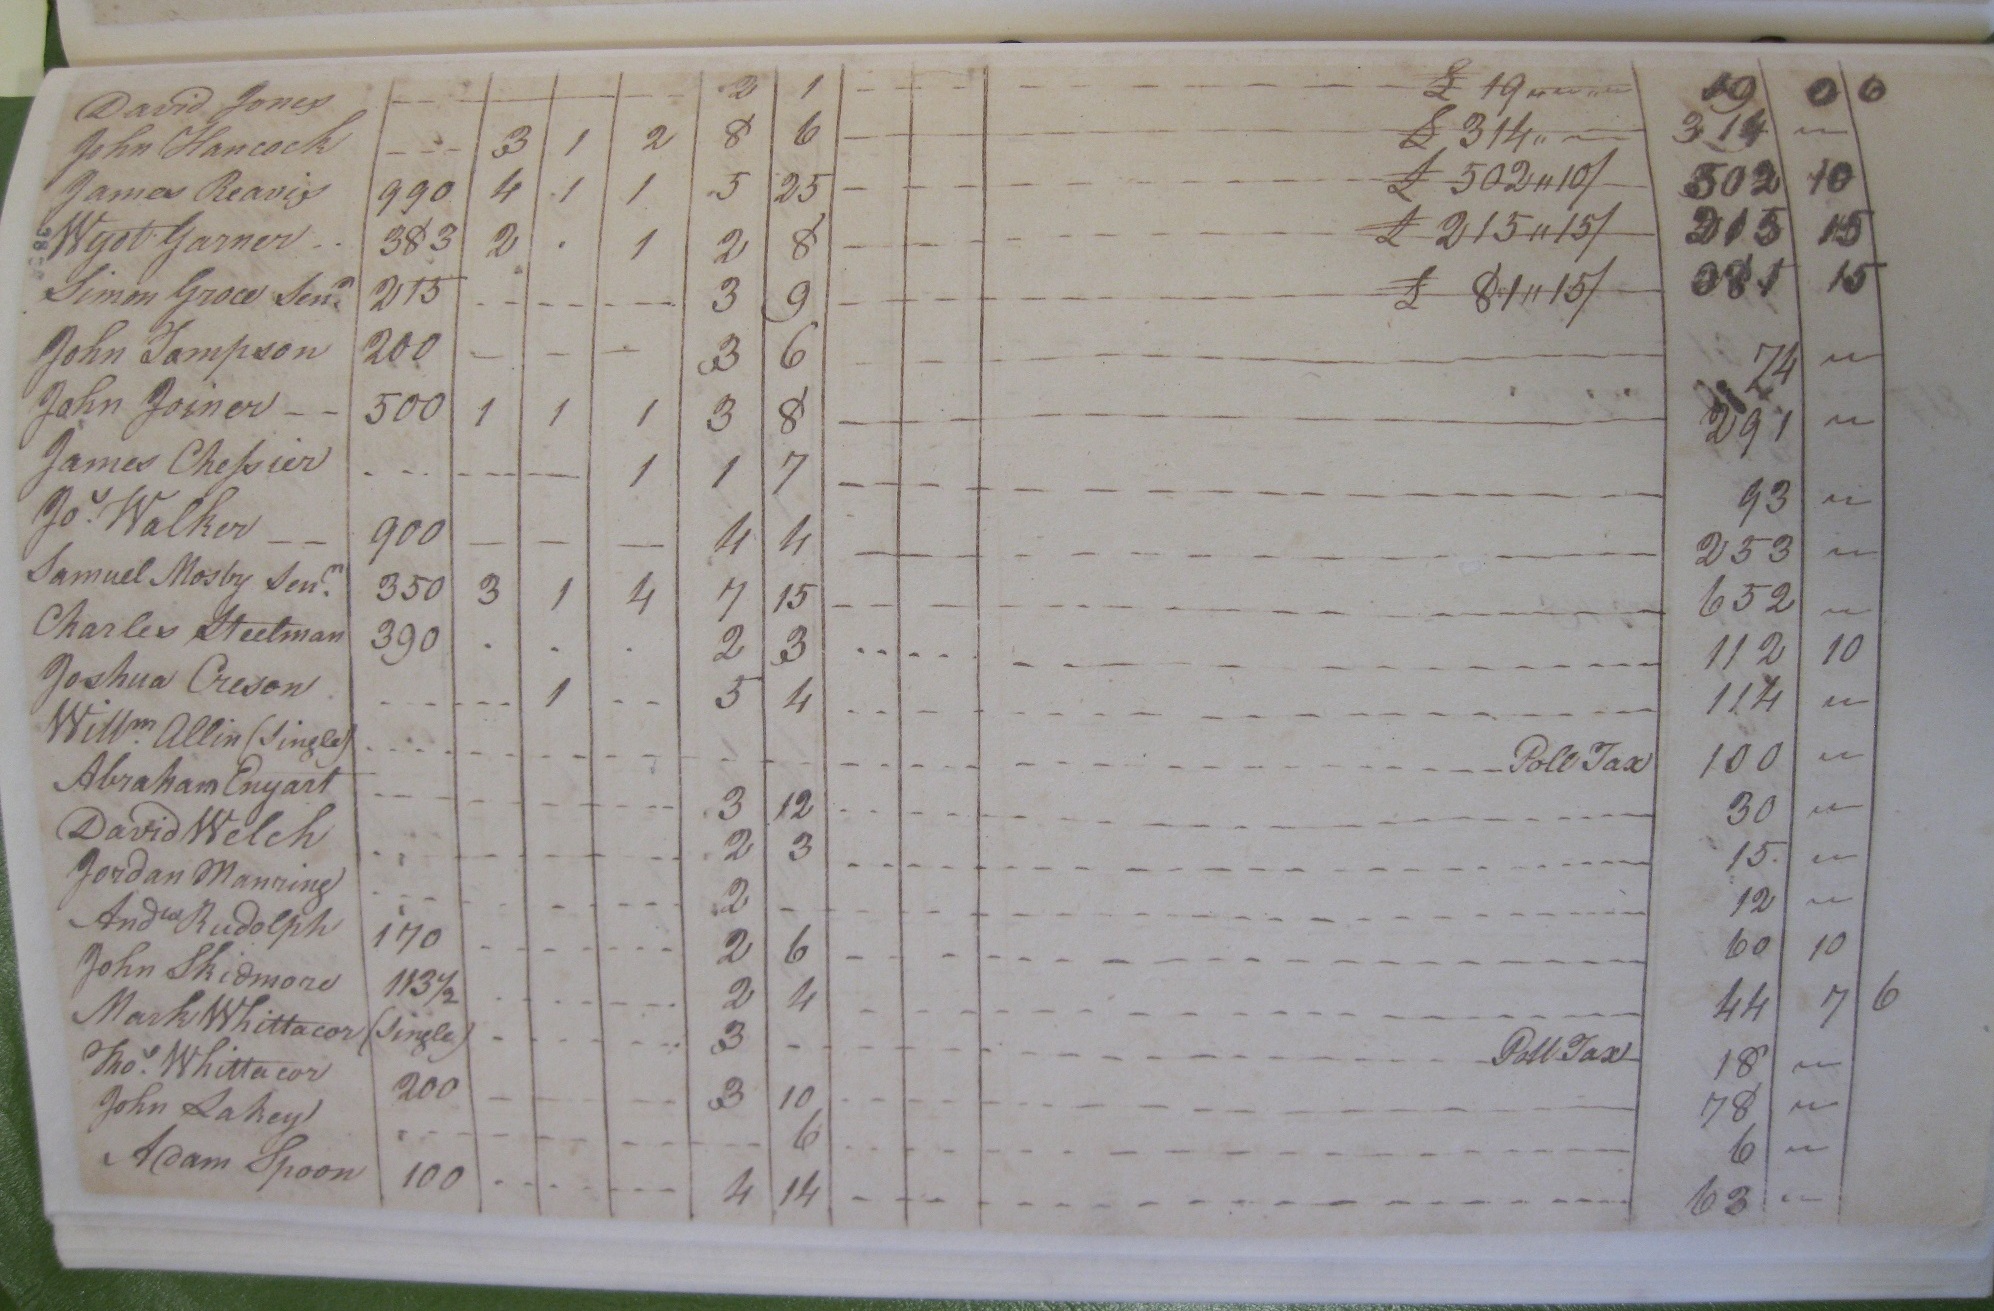 David Jones 2 1 £ 19 19 0 6
John Hancock 3 1 2 8 6 £ 314 314
James Reavis 990 4 1 1 5 25 £ 502"10/ 502 10
Wyot Garner 383 2 1 2 8 £ 215"15/ 215 15
Simon Groce Senr. 215 3 9 £ 81"15/ 081 15
John Tompson 200 3 6 74
John Joiner 500 1 1 1 3 8 291
James Chessier 1 1 7 93
Jos. Walker 900 4 4 253
Samuel Mosby Senr. 350 3 1 4 7 15 652
Charles Steelman 390 2 3 112 10
Joshua Creson 1 5 4 114
Willm. Allin (Single) Poll Tax 100
Abraham Enyart 3 12 30
David Welch 2 3 15
Jordan Manring 2 12
Andw Rudolph 170 2 6 60 10
John Skidmore 113 1/2 2 4 44 7 6
Mark Whittacor (Single) 3 Poll Tax 18
Thos. Whittacor 200 3 10 78
John Lakey 6 6
Adam Spoon 100 4 14 63